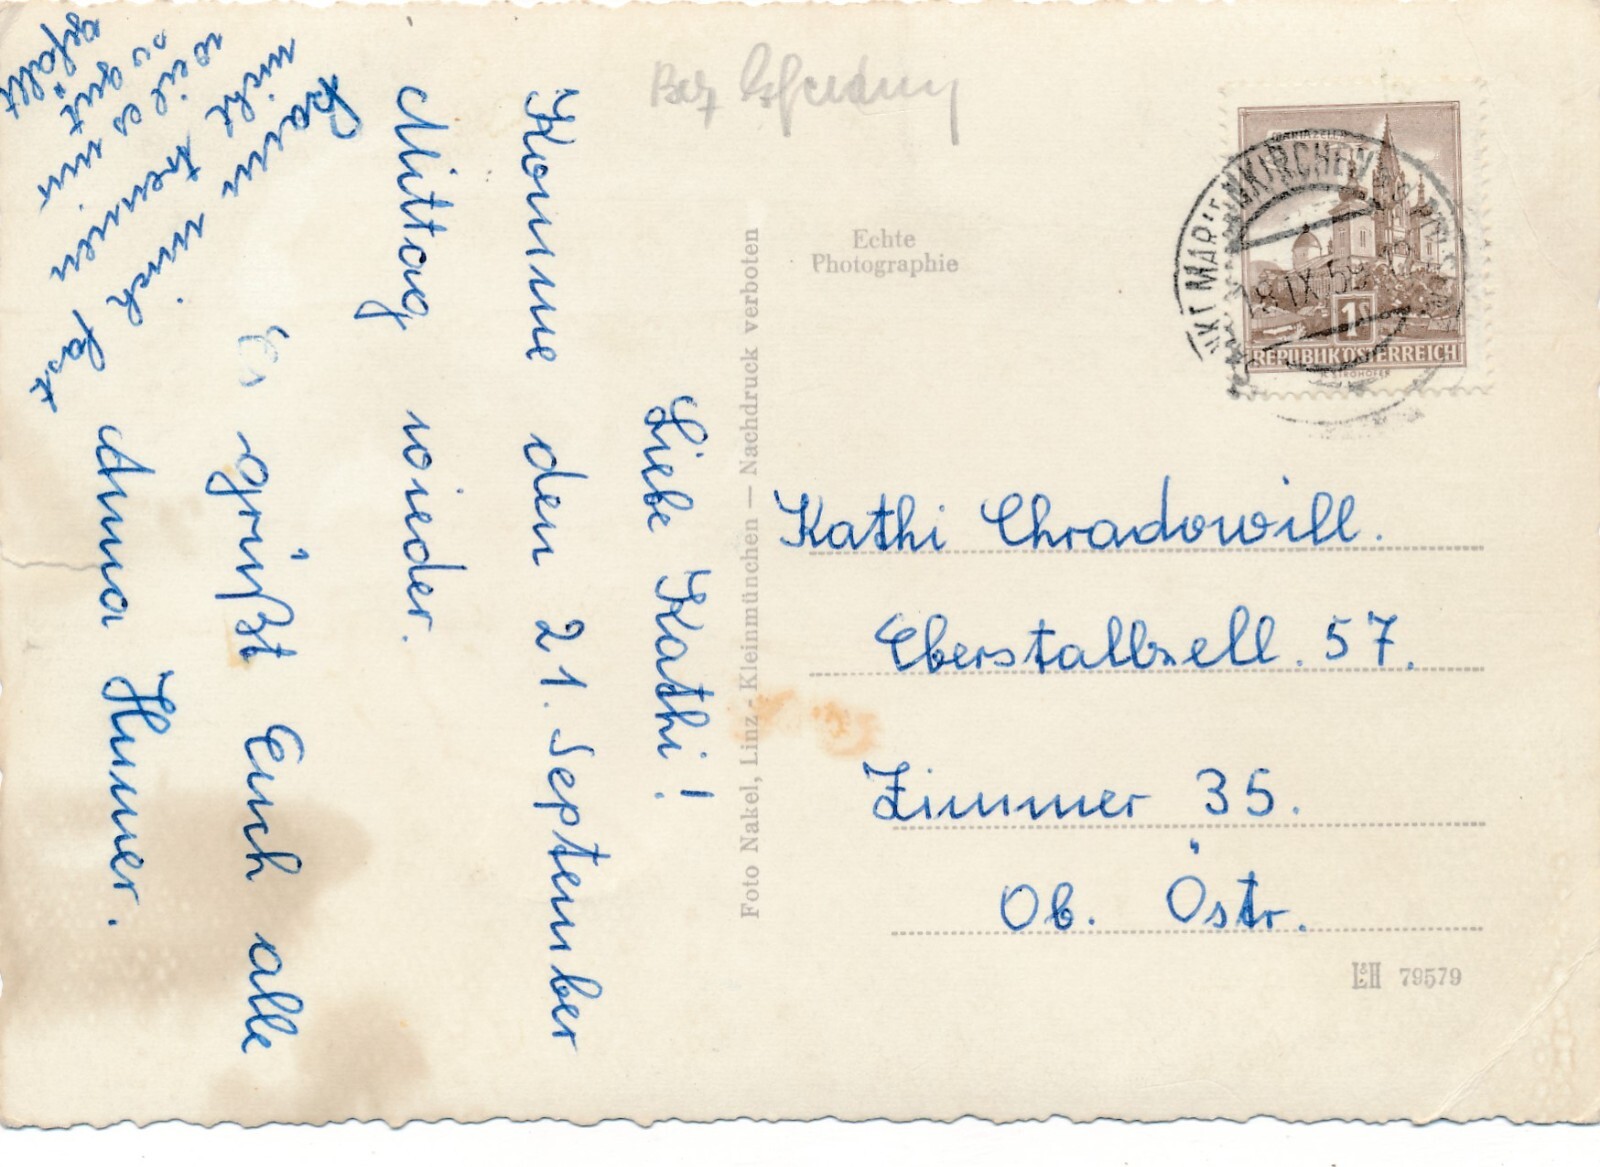 Liebe Kathi!
Komme den 21. September
Mittag wieder.
Es grüßt Euch alle
Anna Humer.
Kann mich fast
nicht trennen
weil es mir
so gut
gefällt
Foto Nakel, Linz - Kleinmünchen — Nachdruck verboten
Echte
Photographie
SANKT MARIENKIRCHEN
IX.59
MARIAZELL
1
REPUBLIK ÖSTERREICH
Kathi Chradowill.
Eberstallzell. 57.
Zimmer 35.
Ob. Östr.
L&H 79579